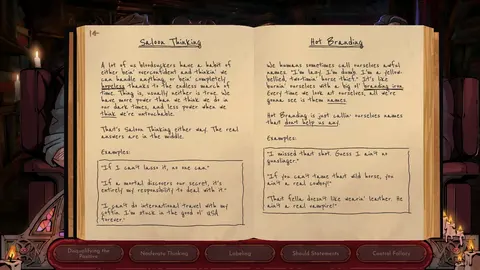 Saloon Thinking
A lot of us bloodsuckers have a habit of
either bein' overconfident and thinkin' we
can handle anything, or bein' completely
hopeless thanks to the endless march of
time. Thing is, usually neither is true. We
have more power than we think we do in
our dark times, and less power when we
think we're untouchable.
That's Saloon Thinking either way. The real
answers are in the middle.
Examples:
"If I can't lasso it, no one can."
"If a mortal discovers our secret, it's
entirely my responsibility to deal with it."
"I can't do international travel with my
coffin. I'm stuck in the good ol' USA
forever."
Hot Branding
We humans sometimes call ourselves awful
names. "I'm lazy. I'm dumb. I'm a yellow-
bellied, two-timin' horse thief." It's like
burnin' ourselves with a big ol' branding iron.
Every time we look at ourselves, all we're
gonna see is them names.
Hot Branding is just callin' ourselves names
that don't help us any.
Examples:
"I missed that shot. Guess I ain't no
gunslinger."
"If you can't tame that wild horse, you
ain't a real cowboy!"
"That fella doesn't like wearin' leather. He
ain't a real vampire!"
Disqualifying the
Positive
Nonbinary Thinking
Labeling
Should Statements
Control Fallacy